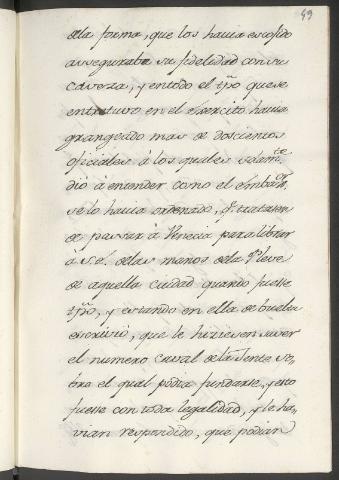 49
dela forma, que los hauia escojido
asseguraba su fidelidad con su
caveza, y entodo el tpo quese
entretuvo en el exercito hauia
grangeado mas de doscientos
oficiales à los quales solamte
dió à entender como el Embaor
selo hauia ordenado, q. tratasen
de passar à Venecia para librar
à S.E. delas manos dela Pleve
de aquella ciudad quando fuesse
tpo, y estando en ella de buelta
escrivió, que le hiziesen saver
el numero caval dela Jente so-
bre el qual podia fundarse, y esto
fuesse con toda legalidad, y le ha-
vian respondido, que podian